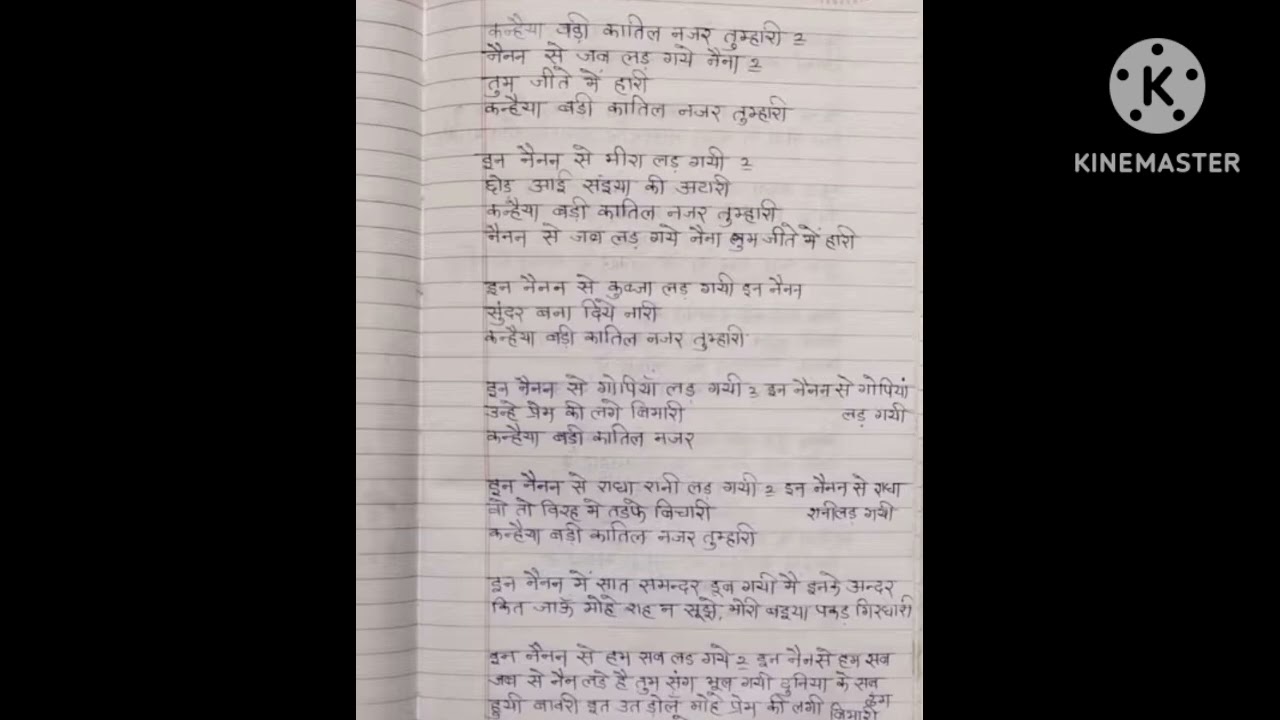 कन्हैया बड़ी कातिल नजर तुम्हारी 2
नैनन से जब लड़ गये नैना 2
तुम जीते में हारी
कन्हैया बड़ी कातिल नजर तुम्हारी
इन नैनन से मीरा लड़ गयी 2
छोड़ आई संइया की अटारी
कन्हैया बड़ी कातिल नजर तुम्हारी
नैनन से जब लड़ गये नैना तुम जीते में हारी
इन नैनन से कुब्जा लड़ गयी इन नैनन
सुंदर बना दिये नारी
कन्हैया बड़ी कातिल नजर तुम्हारी
इन नैनन से गोपियाँ लड़ गयी 2 इन नैनन से गोपियां
उन्हे प्रेम की लगे बिमारी लड़ गयी
कन्हैया बड़ी कातिल नजर
इन नैनन से राधा रानी लड़ गयी 2 इन नैनन से राधा
वो तो विरह मे तडफे बिचारी रानी लड़ गयी
कन्हैया बड़ी कातिल नजर तुम्हारी
इन नैनन में सात समन्दर डूब गयी मैं इनके अन्दर
कित जाऊँ मोहे राह न सूझे, मोरी बइया पकड़ गिरधारी
इन नैनन से हम सब लड़ गये 2 इन नैनसे हम सब
जब से नैन लडे है तुम संग भूल गयी दुनिया के सब
ढंग
हुयी बावरी इत उत डोलूँ मोहे प्रेम की लगी बिमारी
K
KINEMASTER